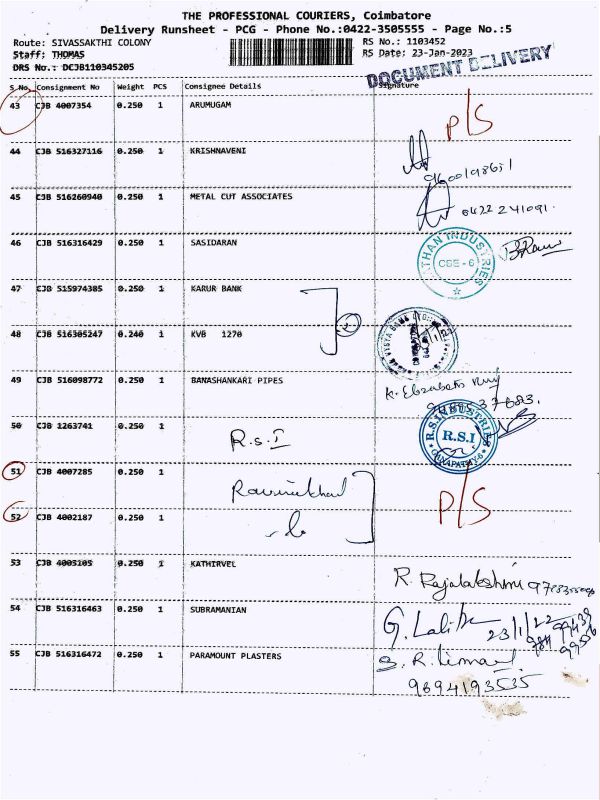 THE PROFESSIONAL COURIERS, Coimbatore
Delivery Runsheet - PCG - Phone No.:0422-3505555 - Page No.:5
Route: SIVASSAKTHI COLONY RS No.: 1103452
Staff: THOMAS RS Date: 23-Jan-2023
DRS No.: DCJB110345205
DOCUMENT DELIVERY
S No. Consignment No Weight PCS Consignee Details Signature
43 CJB 4007354 0.250 1 ARUMUGAM P/S
44 CJB 516327116 0.250 1 KRISHNAVENI
45 CJB 516260940 0.250 1 METAL CUT ASSOCIATES 0422 241091.
46 CJB 516316429 0.250 1 SASIDARAN
CBE - 6
47 CJB 515974385 0.250 1 KARUR BANK
2
48 CJB 516305247 0.240 1 KVB 1270
49 CJB 516098772 0.250 1 BANASHANKARI PIPES
50 CJB 1263741 0.250 1 R.S.I
R.S.INDUSTRIES
R.S.I
GANAPATHY-6
51 CJB 4007285 0.250 1 P/S
52 CJB 4002187 0.250 1
53 CJB 4005105 0.250 1 KATHIRVEL R. Rajalakshmi
54 CJB 516316463 0.250 1 SUBRAMANIAN G. Lalitha 23/1/22
55 CJB 516316472 0.250 1 PARAMOUNT PLASTERS
9694193535